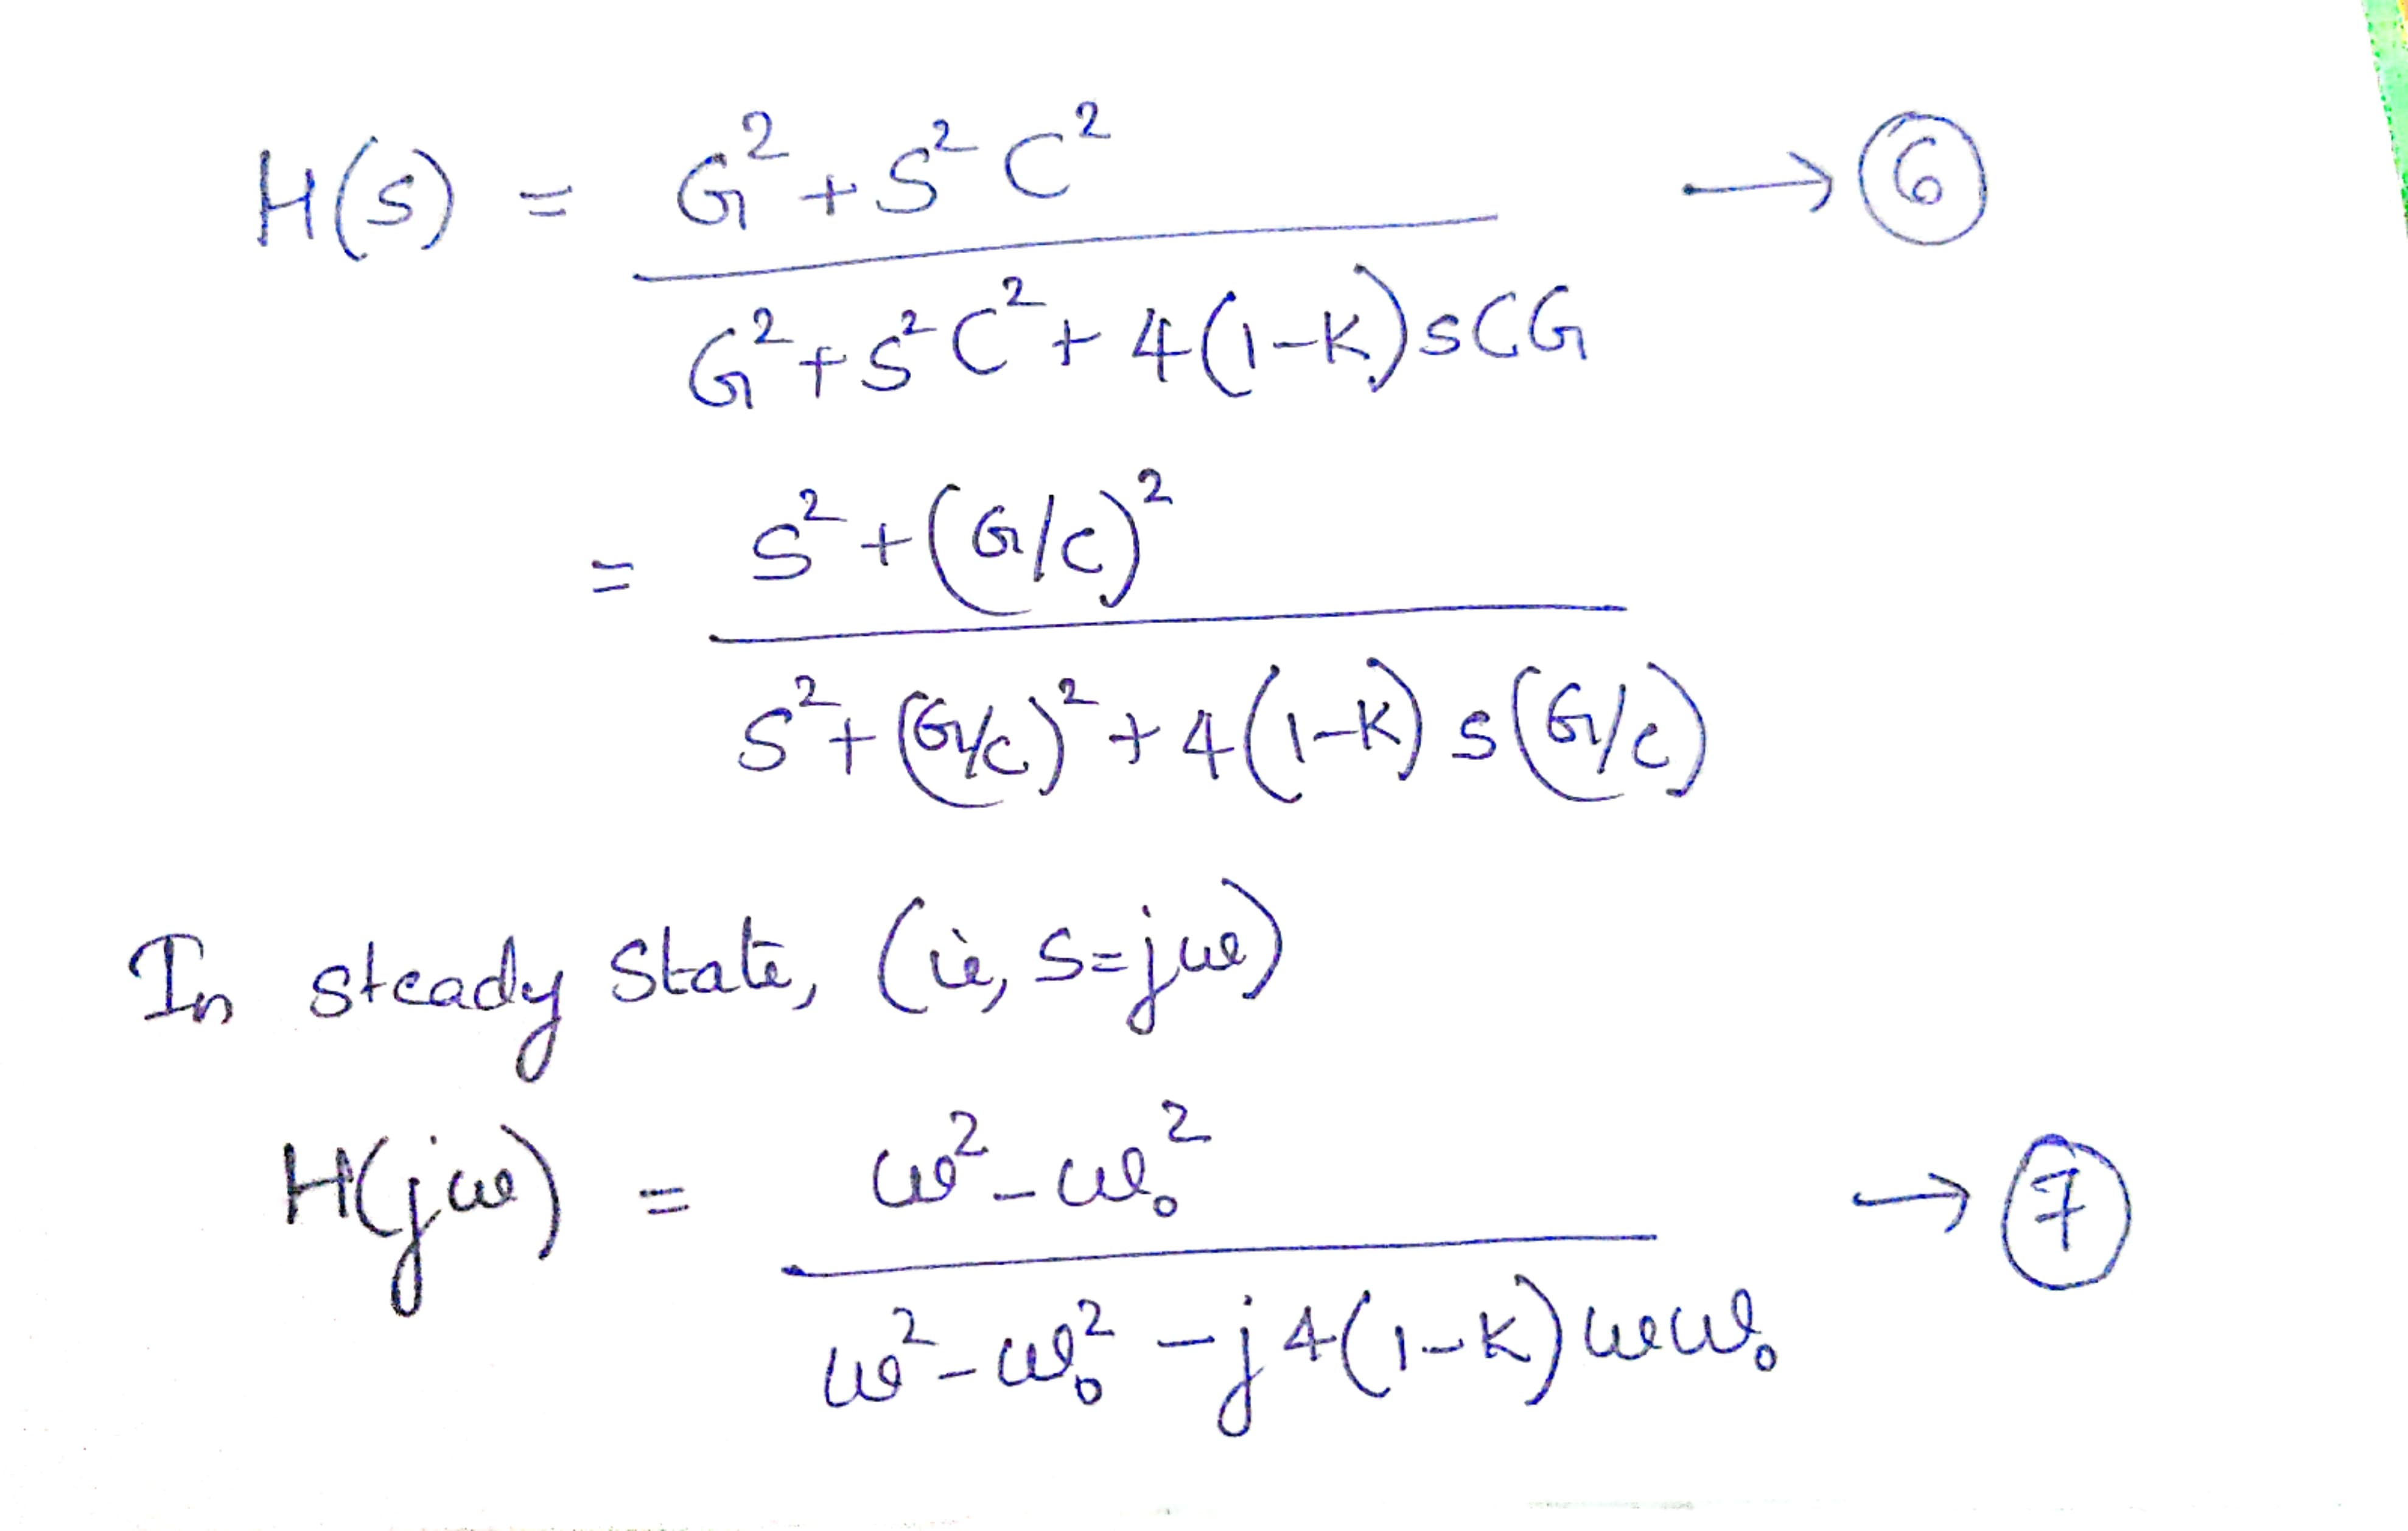 H(s) = G² + S² C² / G² + S² C² + 4(1-K) sCG → 6
= S² + (G/C)² / S² + (G/C)² + 4(1-K) s(G/C)
In steady state, (ie, s=jω)
H(jω) = ω² - ω₀² / ω² - ω₀² - j4(1-K)ωω₀ → 7